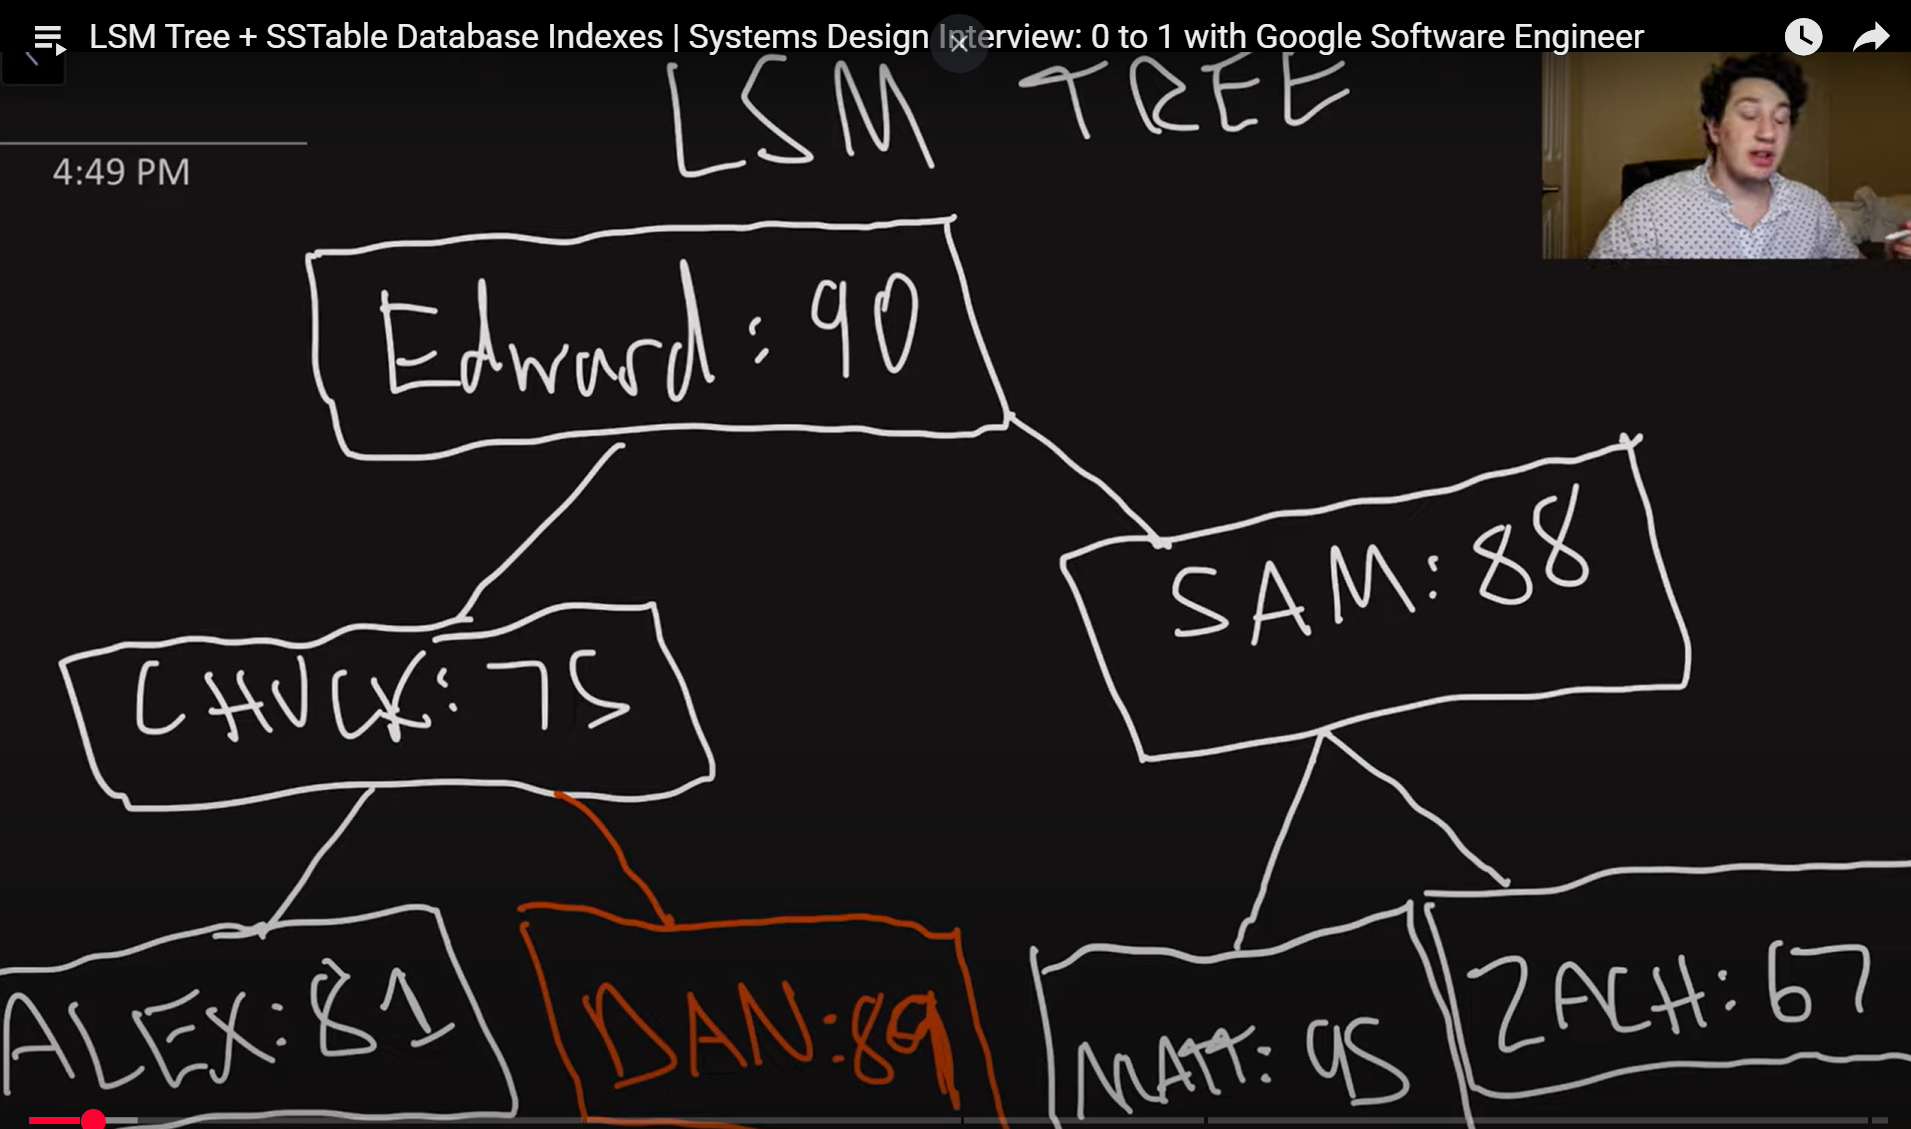 LSM Tree + SSTable Database Indexes | Systems Design Interview: 0 to 1 with Google Software Engineer
LSM TREE
4:49 PM
Edward: 90
SAM: 88
CHUCK: 75
ALEX: 81
DAN: 89
MATT: 95
ZACH: 67